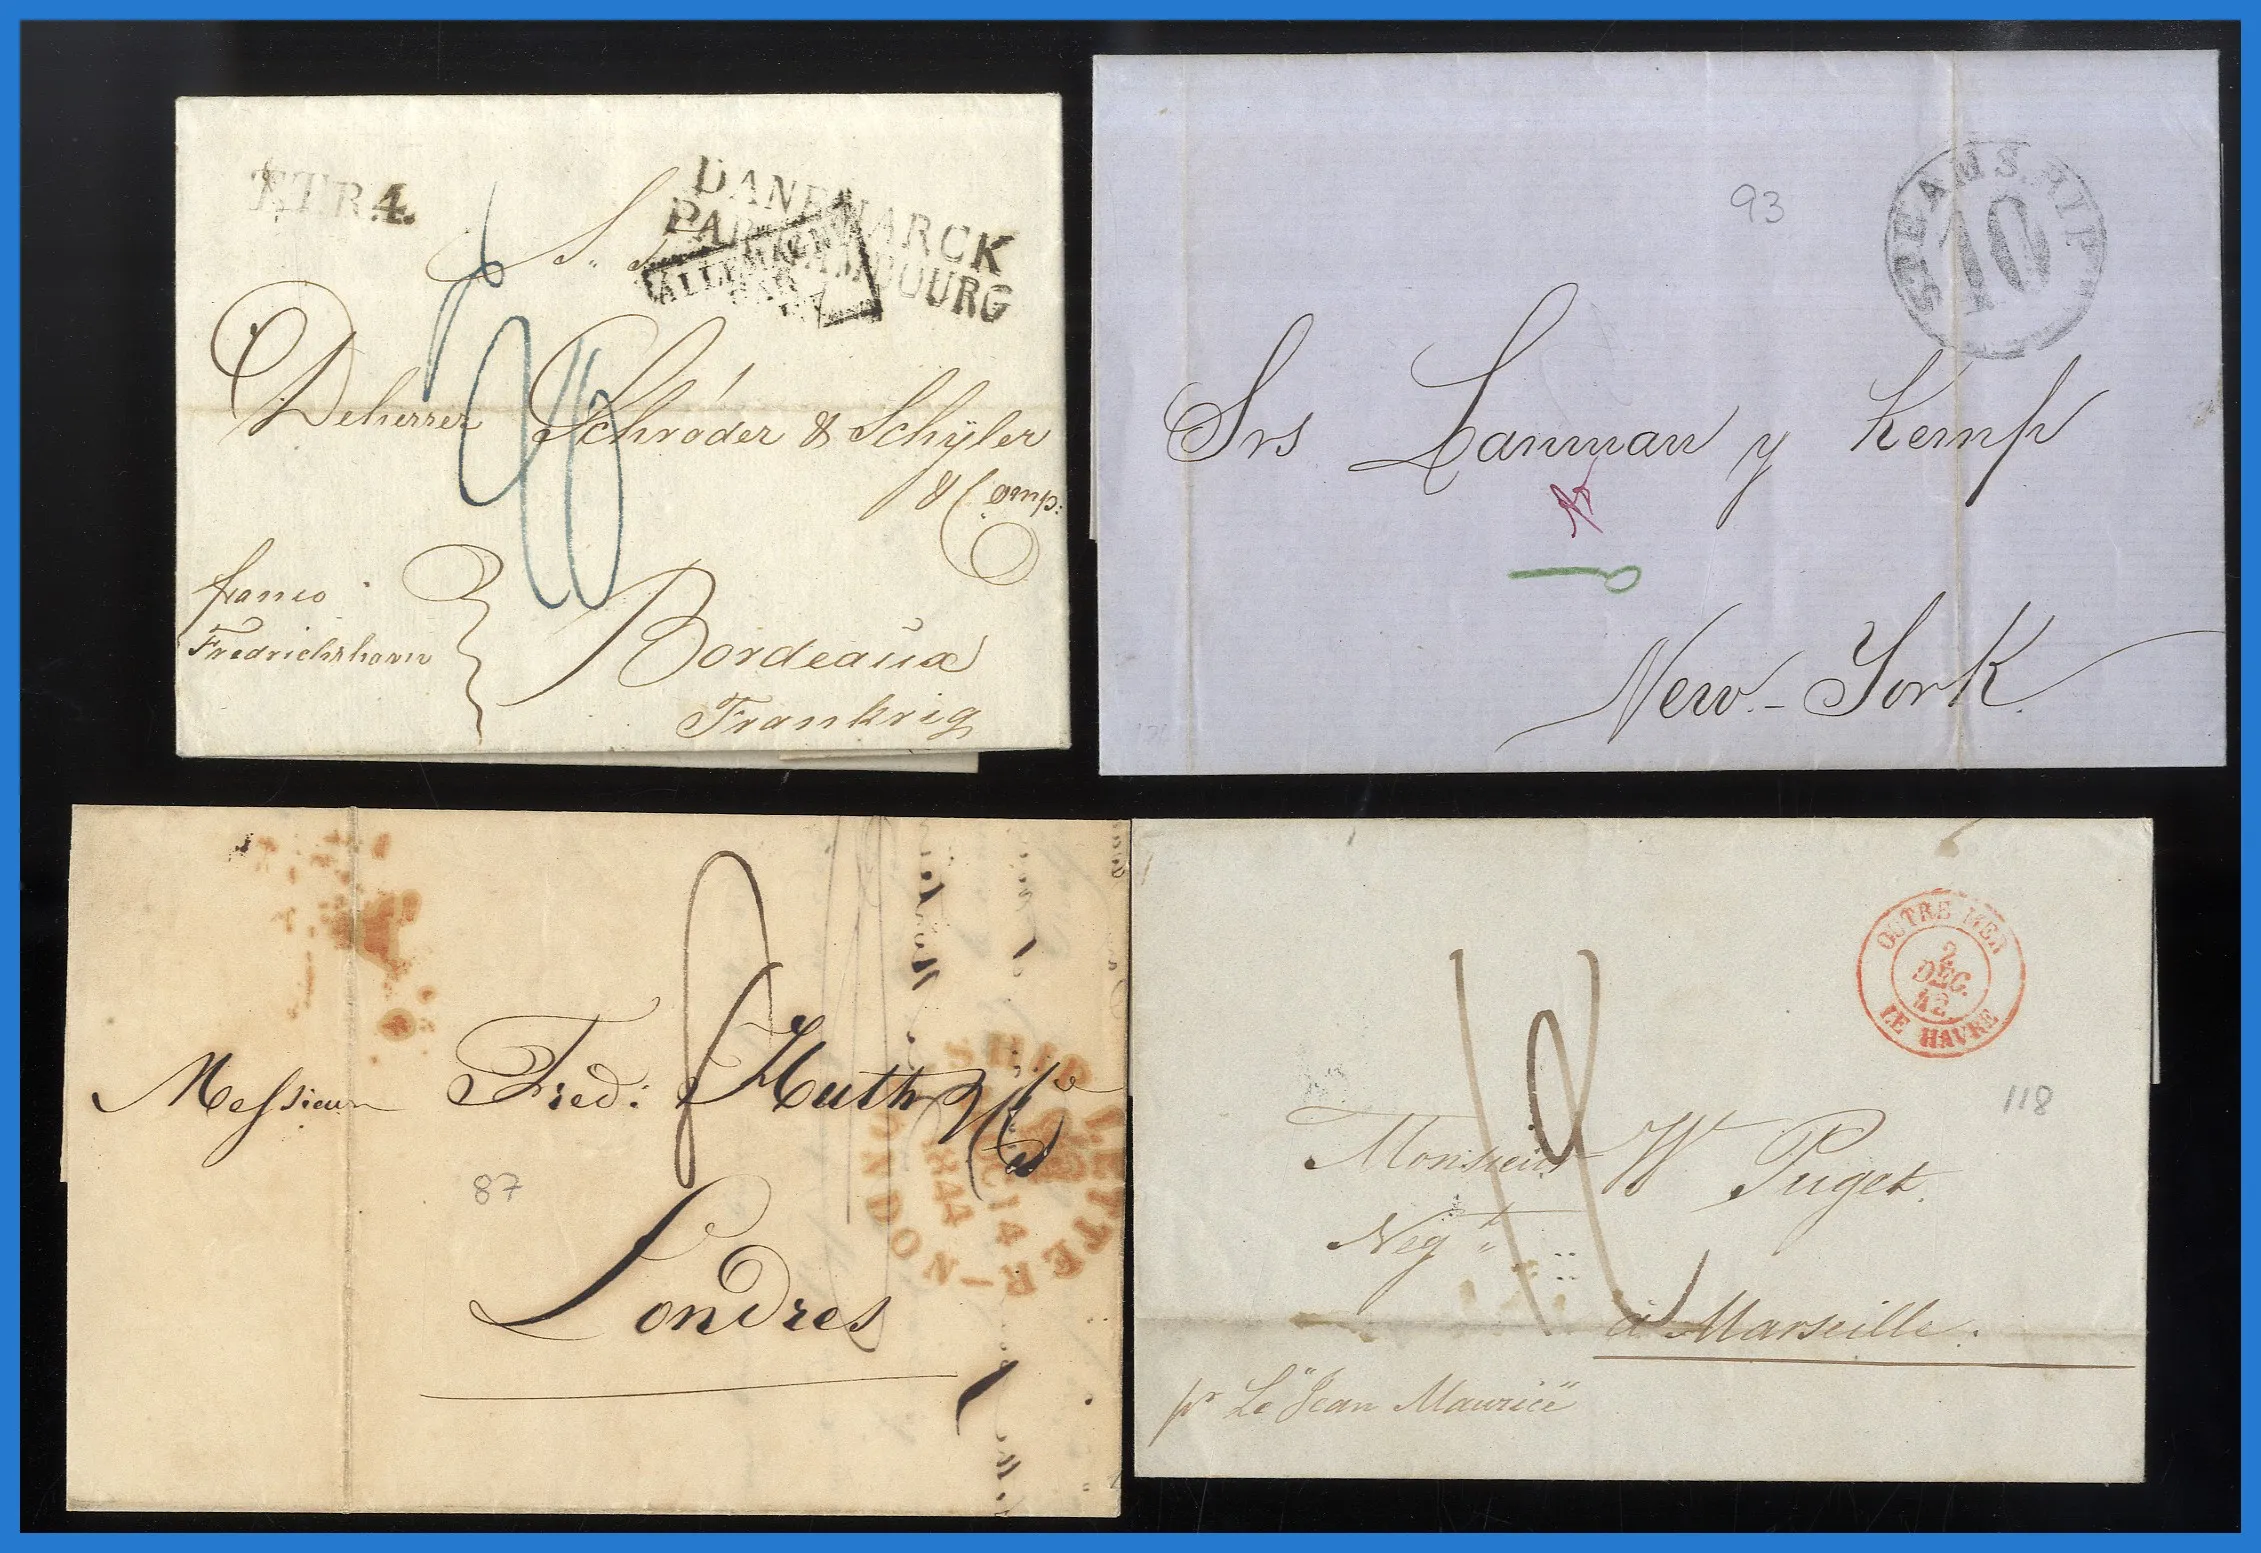 T.T.R.4.
DANEMARCK
PAR HAMBOURG
ALLEMAGNE
PAR
S. T.
Deherrer Schröder & Schÿler
& Comp:
franco
Fredrichshavn
Bordeaux
Frankrig
93
STEAMSHIP
10
Srs Lanman y Kemp
New-York
Messieurs Fred: Huth & Co
87
Londres
SHIP LETTER
14
1844
LONDON
OUTRE MER
2
DEC.
42
LE HAVRE
118
Monsieur W Puget
Negt
à Marseille.
pr Le "Jean Maurice"